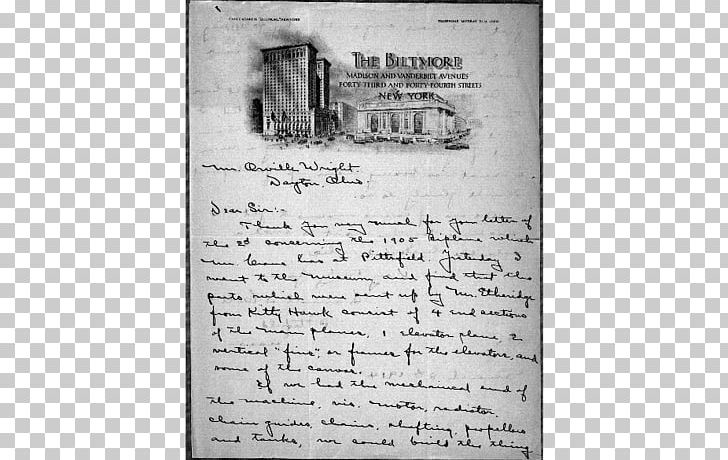 THE BILTMORE
MADISON AND VANDERBILT AVENUES
FORTY-THIRD AND FORTY-FOURTH STREETS
NEW YORK
Mr. Orville Wright
Dayton, Ohio.
Dear Sir:-
Thank you very much for your letter of
the 2d concerning the 1905 biplane which
Mr. Crane has at Pittsfield. Yesterday I
went to the museum and find that the
parts which were sent up by Mr. Etheridge
from Kitty Hawk consist of 4 end sections
of the main planes, 1 elevator plane, 2
vertical "fins", or frames for the elevators, and
some of the canvas.
If we had the mechanical end of
the machine, viz. motor, radiator,
chain guides, chains, shafting, propellers
and tanks, we could build the thing